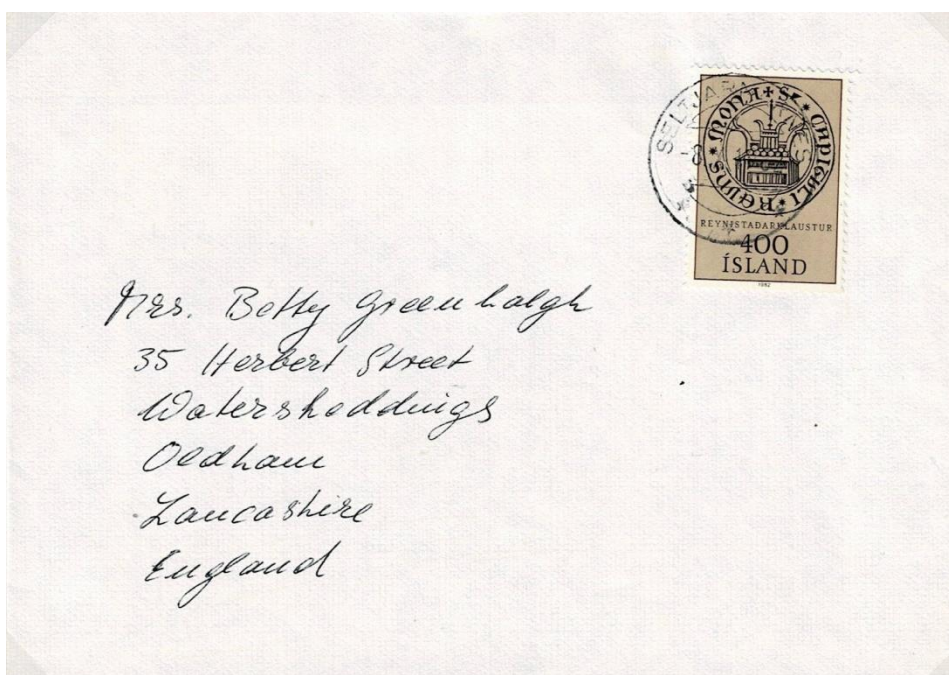 SELTJARNARNES
-8
MONA + SC CAPIGULI RGUNS
REYNISTAÐARKLAUSTUR
400
ÍSLAND
1982
Mrs. Betty Greenhalgh
35 Herbert Street
Watersheddings
Oldham
Lancashire
England